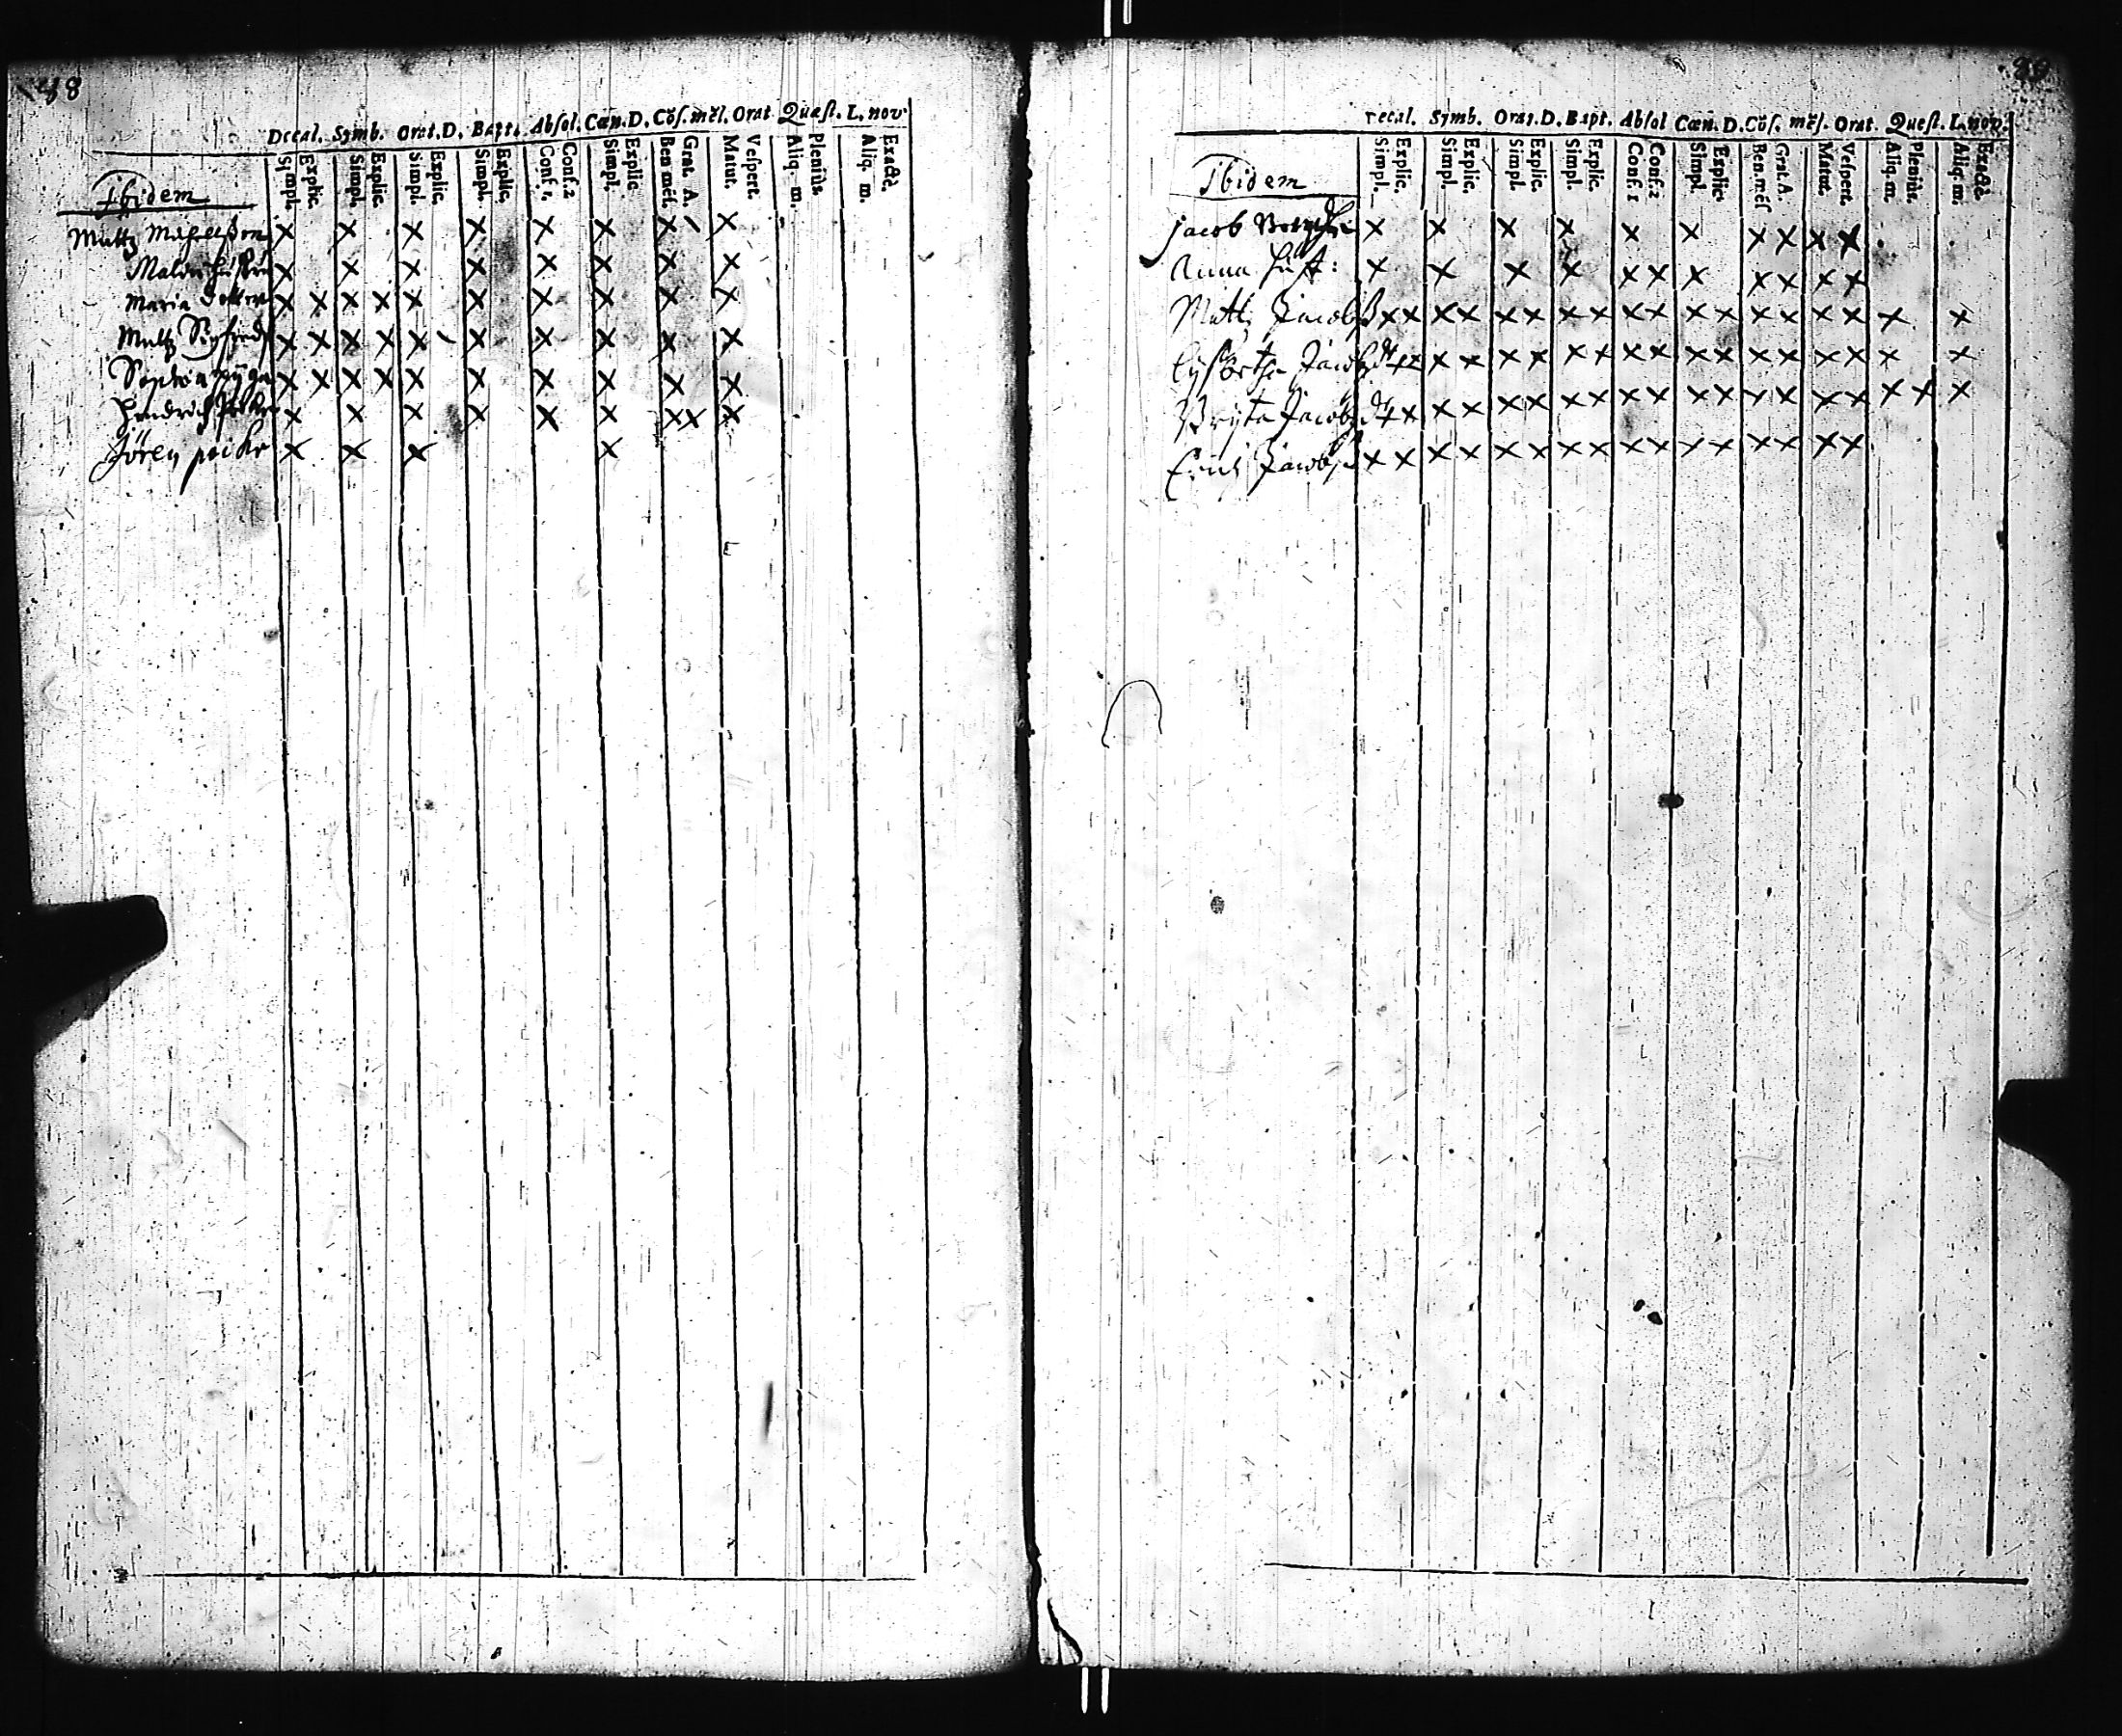 88
Decal. Symb. Orat. D. Bapt. Absol. Cœn. D. Cōs. mēs. Orat Quæst. L. nov.
Simpl. Explic. Simpl. Explic. Simpl. Explic. Simpl. Explic. Conf. 1. Conf. 2 Simpl. Explic Ben mēs. Grat. A. Matut. Vespert. Aliq. m. Pleniùs. Aliq. m. Exactè.
Ibidem
Mattz x x x x x x x x
Malin hustru x x x x x x x x
Maria dotter x x x x x x x x x x
Mattz Sigfreds x x x x x x x x x x
Sophia pyga x x x x x x x x x x
Hendrich x x x x x x x x x
Jören poike x x x x
89
Decal. Symb. Orat. D. Bapt. Absol Cœn. D. Cōs. mēs. Orat. Quest. L. nov.
Simpl. Explic. Simpl. Explic. Simpl. Explic. Simpl. Explic. Conf. 1 Conf. 2 Simpl. Explic. Ben. mēs Grat A. Matut. Vespert. Aliq. m. Pleniùs. Aliq. m. Exactè.
Ibidem
Jacob x x x x x x x x x x
Anna hust: x x x x x x x x x x x
Matts Jacobss x x x x x x x x x x x x x x x x x x
Jacobs dr x x x x x x x x x x x x x x x x x x
Bryta Jacobs dr x x x x x x x x x x x x x x x x x x x
Erich Jacobss x x x x x x x x x x x x x x x x